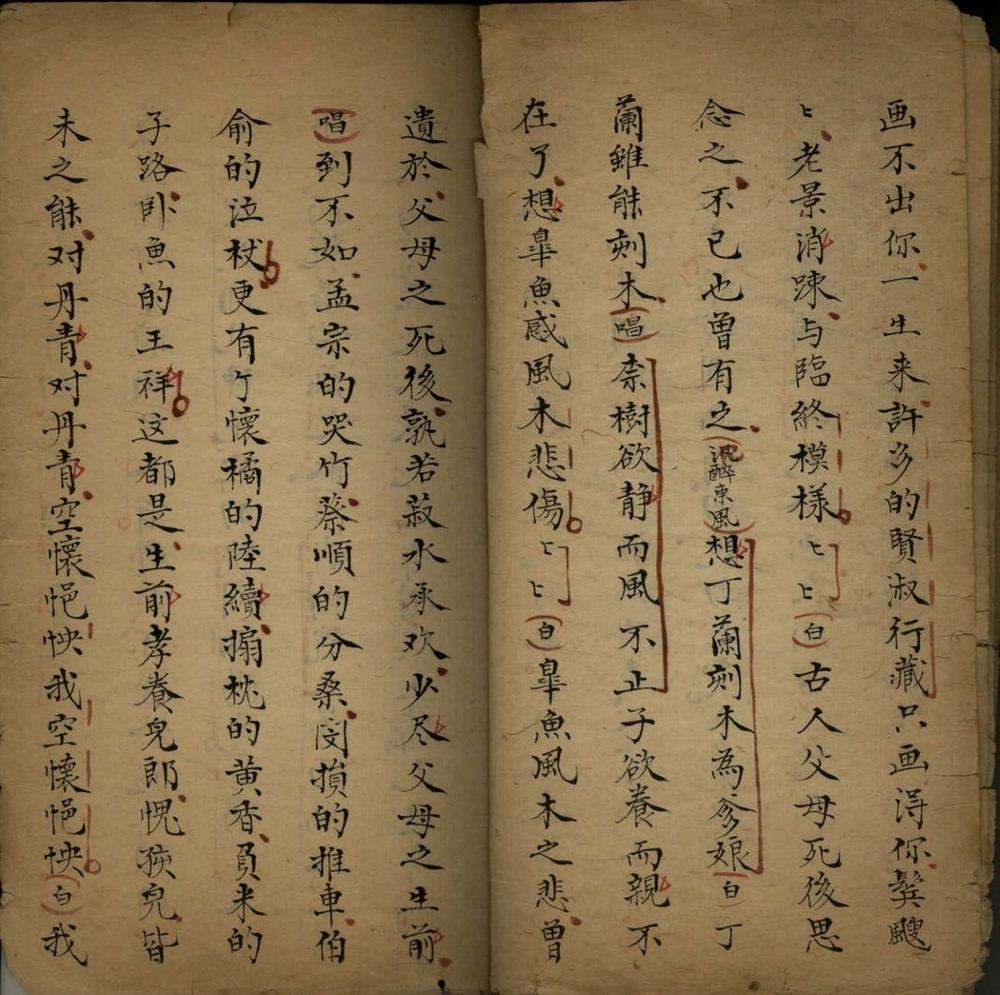 画不出你一生来許多的賢淑行藏只画淂你鬓颼
ヒ老景消踈与臨終模樣ヒヒ(白)古人父母死後思
念之不已也曽有之(沉醉東風)想丁蘭刻木為爹娘(白)丁
蘭雖能刻木(唱)柰樹欲静而風不止子欲養而親不
在了想皐魚感風木悲傷ヒヒ(白)皐魚風木之悲曽
遺於父母之死後孰若菽水承欢少尽父母之生前
(唱)到不如孟宗的哭竹蔡順的分桑閔損的推車伯
俞的泣杖更有个懷橘的陸續搧枕的黄香負米的
子路卧魚的王祥这都是生前孝養兒郎愧孩兒皆
未之能对丹青对丹青空懷悒怏我空懷悒怏(白)我